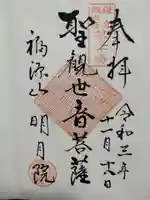 奉拝
令和三年
十一月十六日
聖観世音菩薩
福源山 明月院